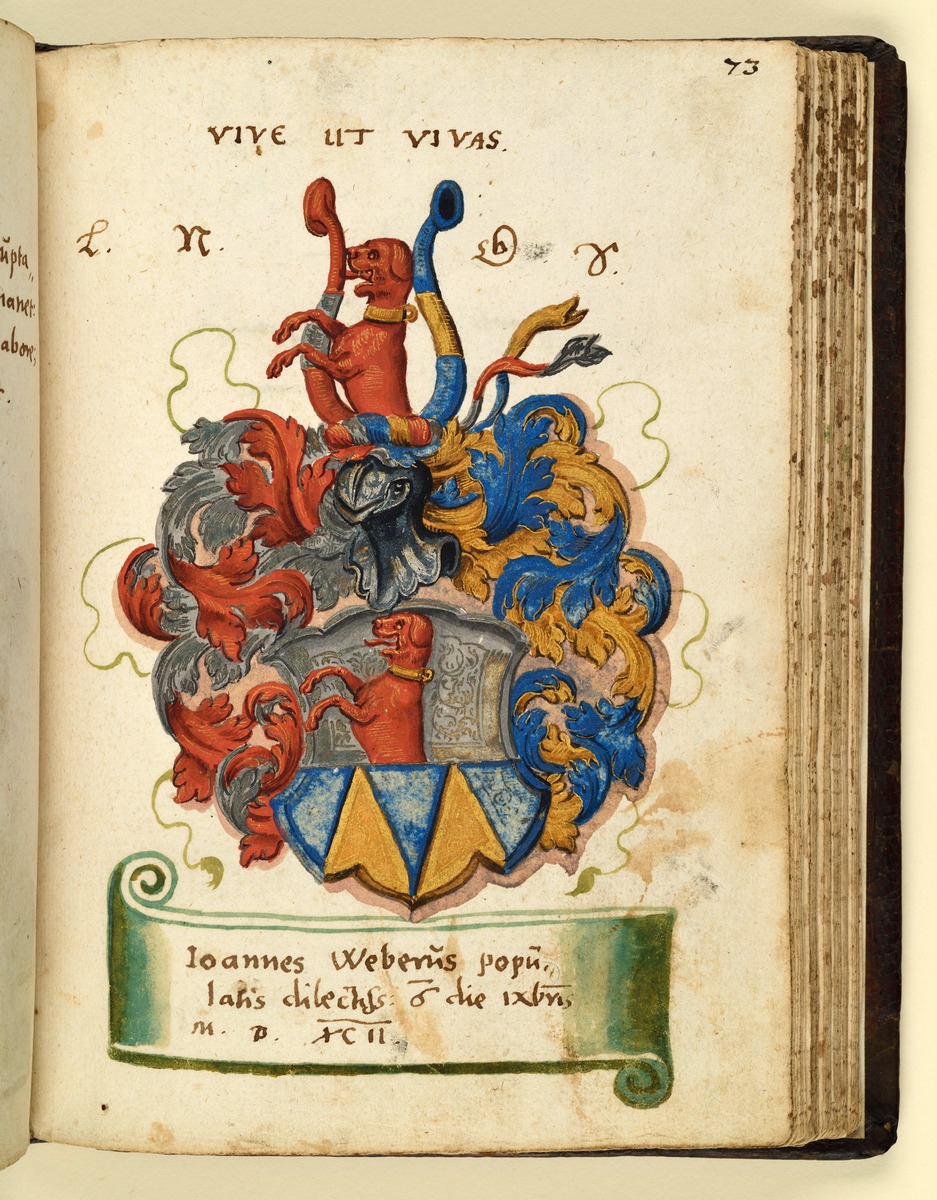 73
VIVE UT VIVAS.
L. N.
ũpta
manet:
abore;
Ioannes Weberũs popũ,,
latis dilectiss: die ixbris
M. D. XCII.